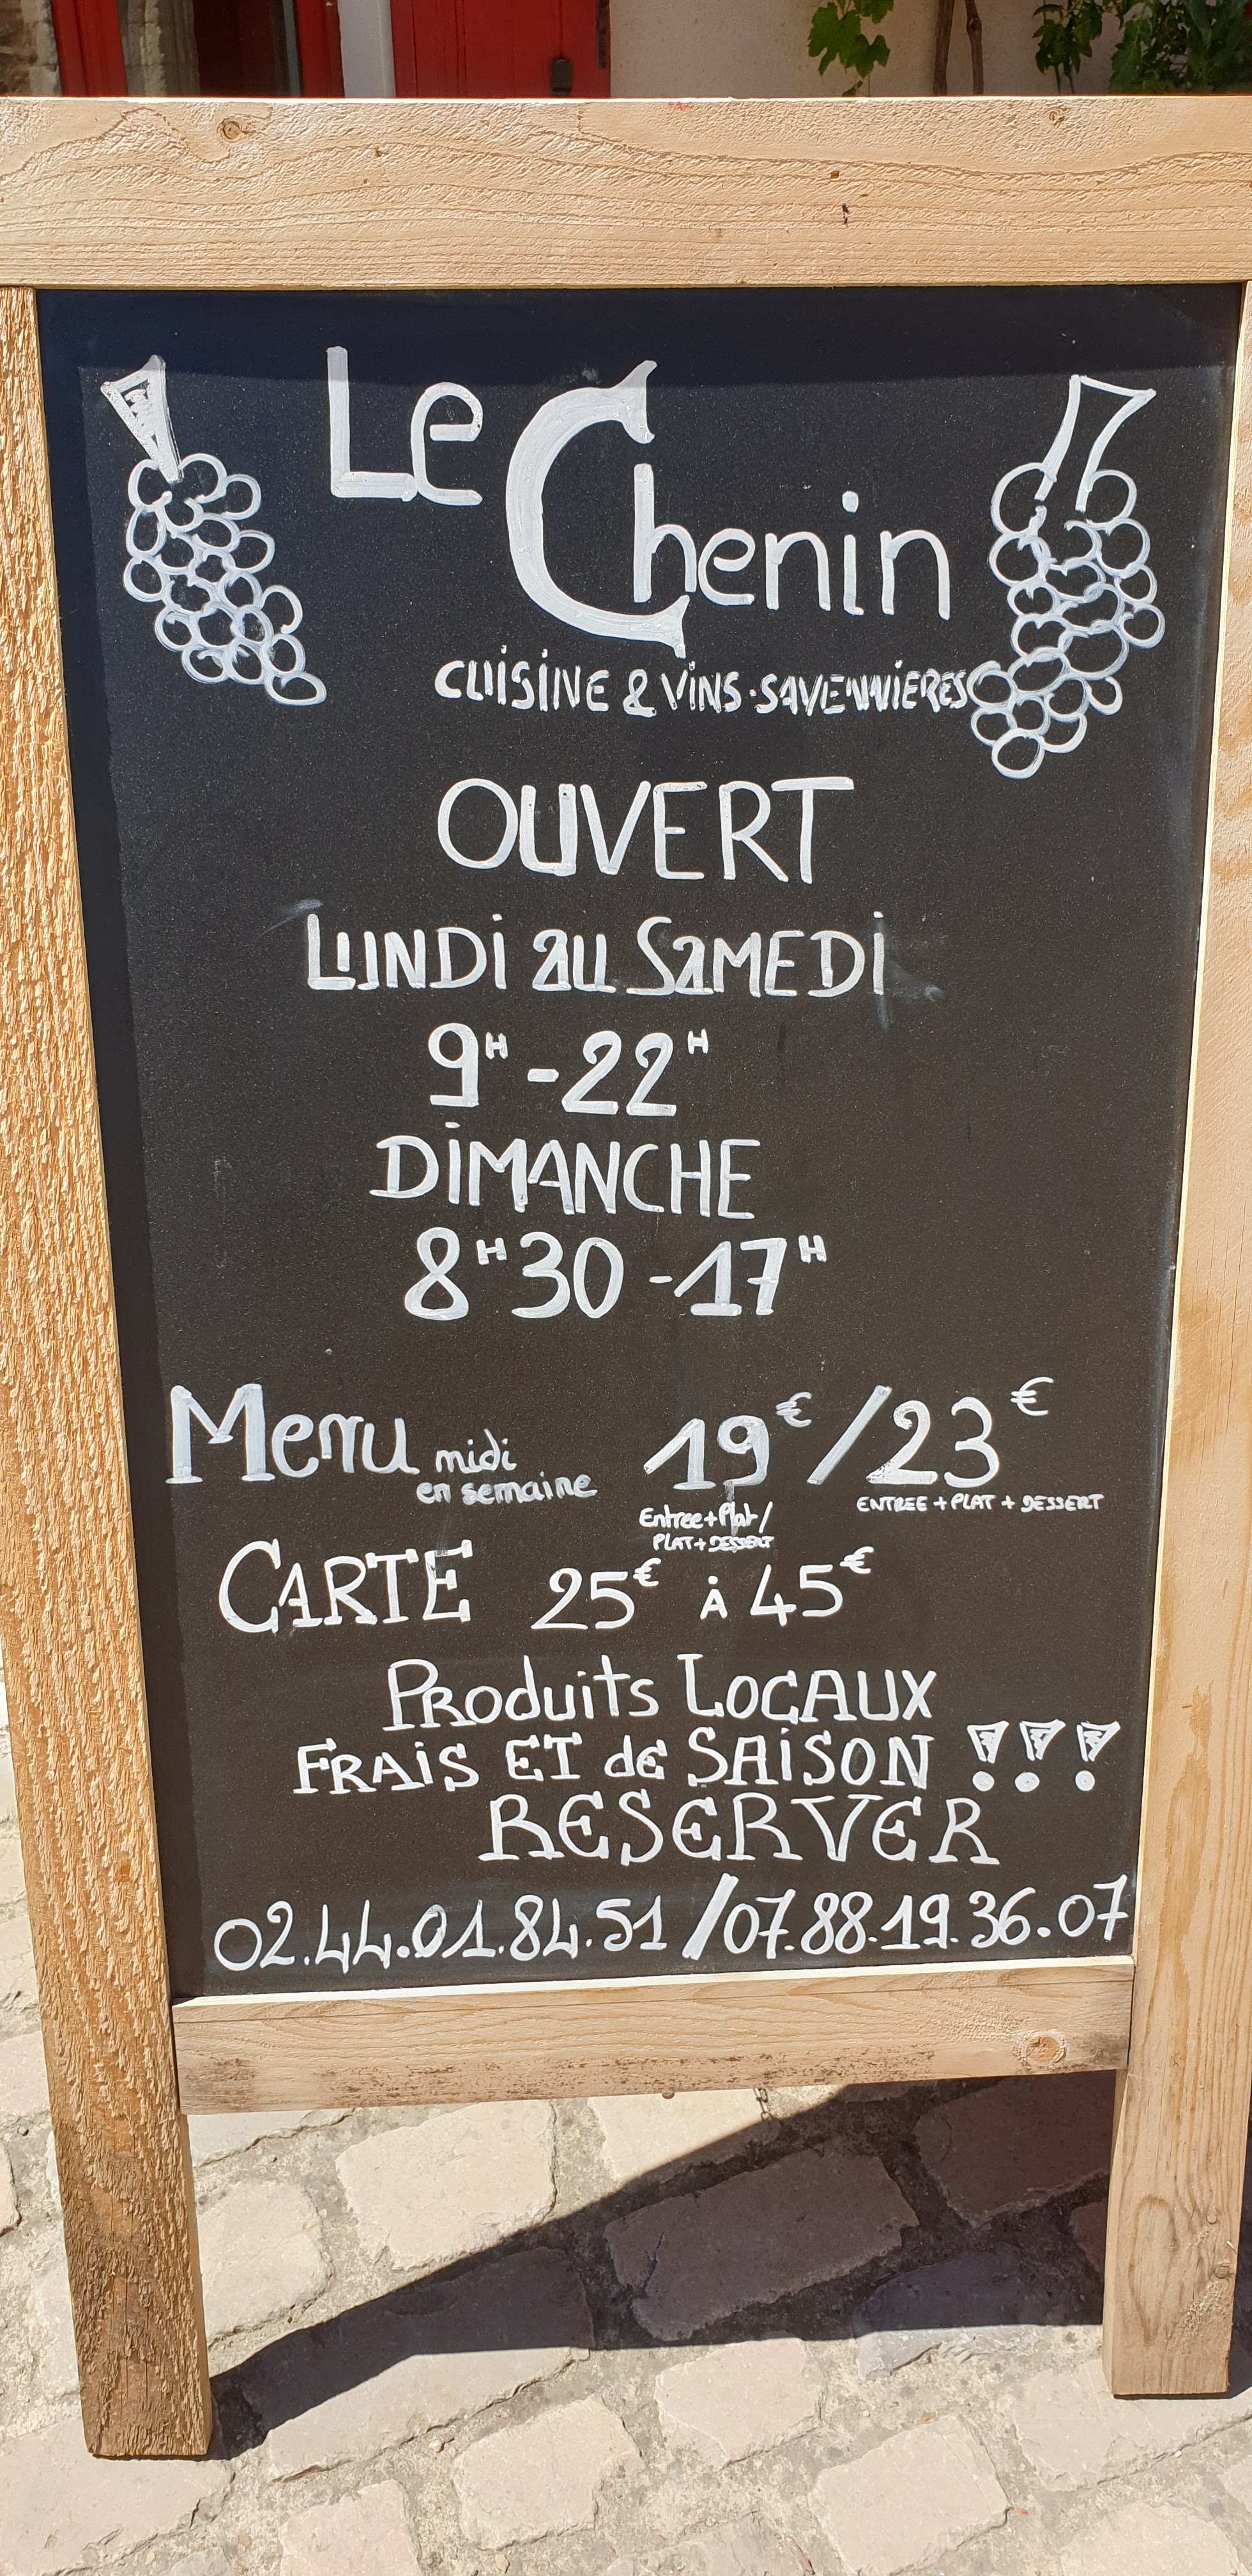 Le Chenin
CUISINE & VINS·SAVENNIERES
OUVERT
LUNDI au SaMEDI
9H - 22H
DIMANCHE
8H30 - 17H
Menu midi en semaine 19€ / 23€
Entree + Plat /
PLAT + DESSERT
ENTREE + PLAT + DESSERT
CARTE 25€ À 45€
PRoduits LOCAUX
FRAIS ET de SAISON !!!
RESERVER
02.44.01.84.51 / 07.88.19.36.07